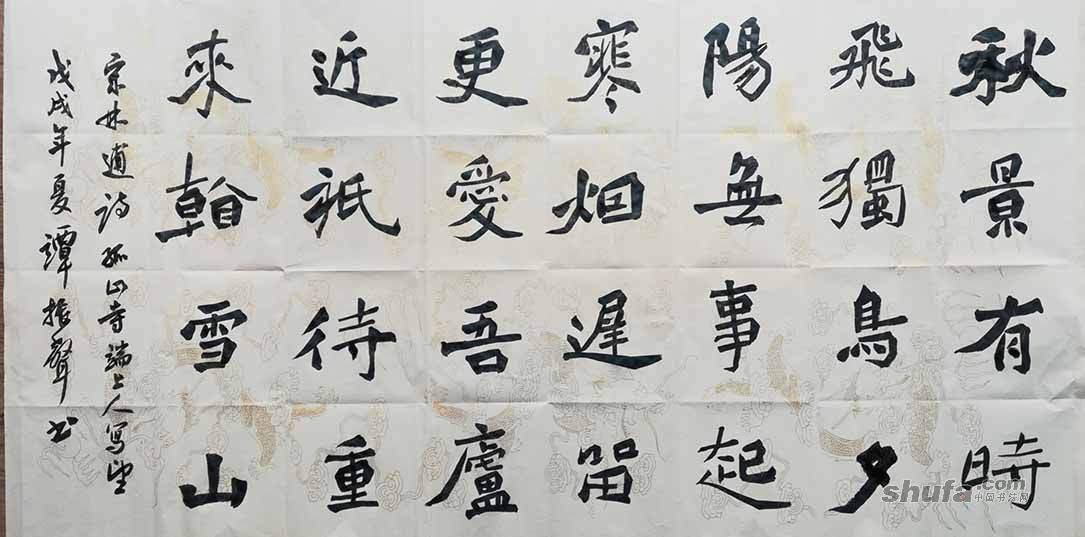 秋景有時
飛獨鳥夕
陽無事起
寒烟遲留
更愛吾廬
近祇待重
來看雪山
宋林逋詩孤山寺端上人写望
戊戌年夏譚振聲书
shufa.com
中国书法网